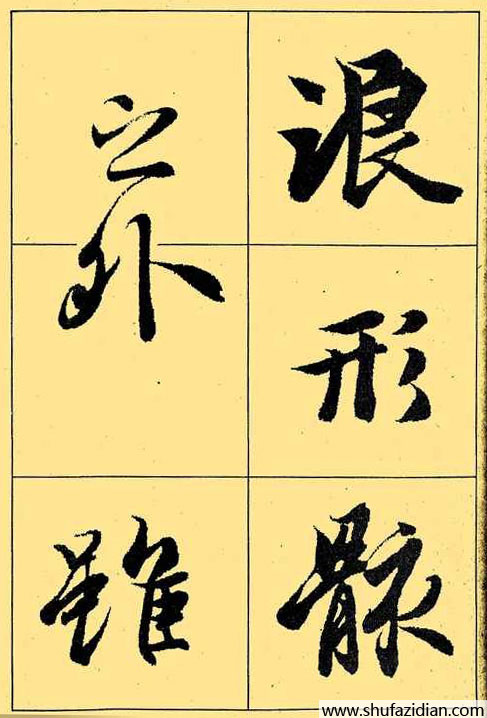 浪形骸
之外雖
www.shufazidian.com